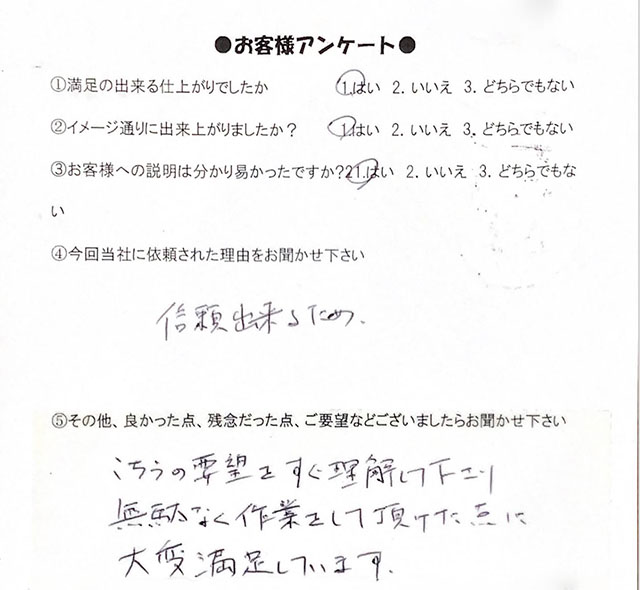 ●お客様アンケート●
①満足の出来る仕上がりでしたか 1.はい 2.いいえ 3.どちらでもない
②イメージ通りに出来上がりましたか？ 1.はい 2.いいえ 3.どちらでもない
③お客様への説明は分かり易かったですか?21.はい 2.いいえ 3.どちらでもな
い
④今回当社に依頼された理由をお聞かせ下さい
信頼出来るため.
⑤その他、良かった点、残念だった点、ご要望などございましたらお聞かせ下さい
こちらの要望をすぐ理解して下さり
無駄なく作業をして頂けた点に
大変満足しています.